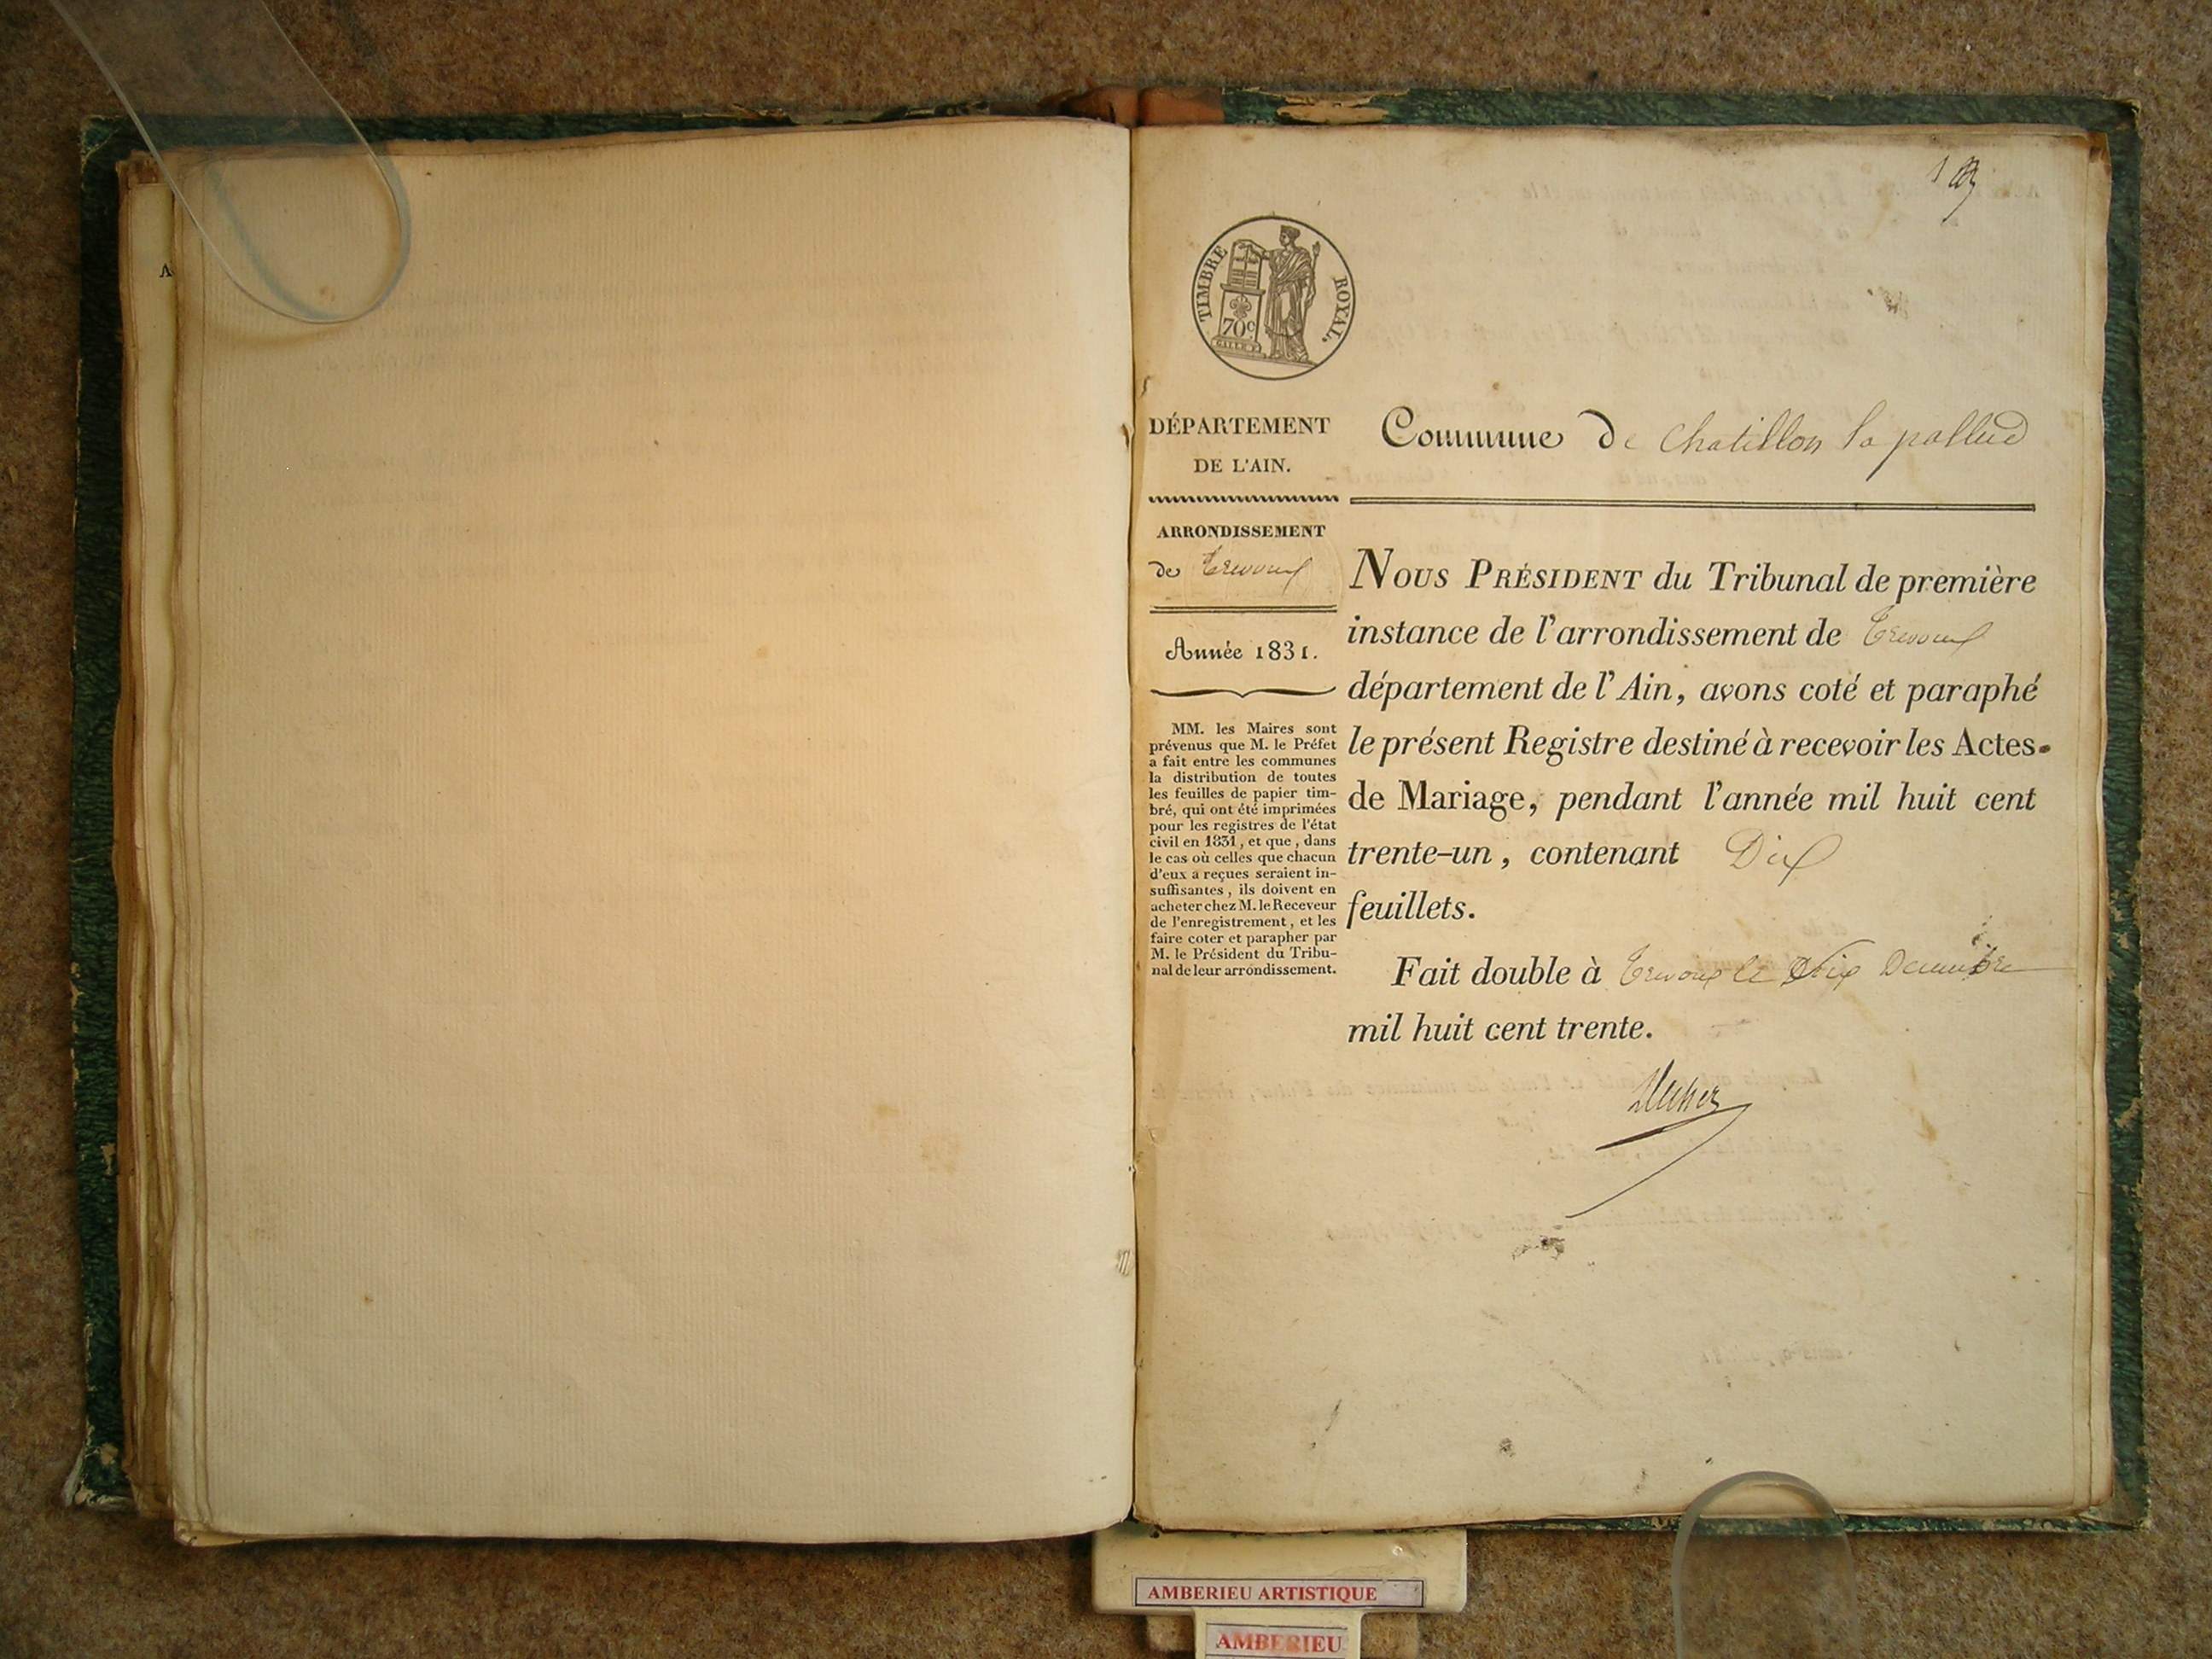 A
TIMBRE ROYAL.
70c
DÉPARTEMENT
DE L'AIN.
ARRONDISSEMENT
de Trevoux
Année 1831.
MM. les Maires sont
prévenus que M. le Préfet
a fait entre les communes
la distribution de toutes
les feuilles de papier tim-
bré, qui ont été imprimées
pour les registres de l'état
civil en 1831, et que, dans
le cas où celles que chacun
d'eux a reçues seraient in-
suffisantes, ils doivent en
acheter chez M. le Receveur
de l'enregistrement, et les
faire coter et parapher par
M. le Président du Tribu-
nal de leur arrondissement.
Commune de Chatillon la pallud
NOUS PRÉSIDENT du Tribunal de première
instance de l'arrondissement de Trevoux
département de l'Ain, avons coté et paraphé
le présent Registre destiné à recevoir les Actes
de Mariage, pendant l'année mil huit cent
trente-un, contenant Dix
feuillets.
Fait double à Trevoux le Dix Decembre
mil huit cent trente.
AMBERIEU ARTISTIQUE
AMBERIEU